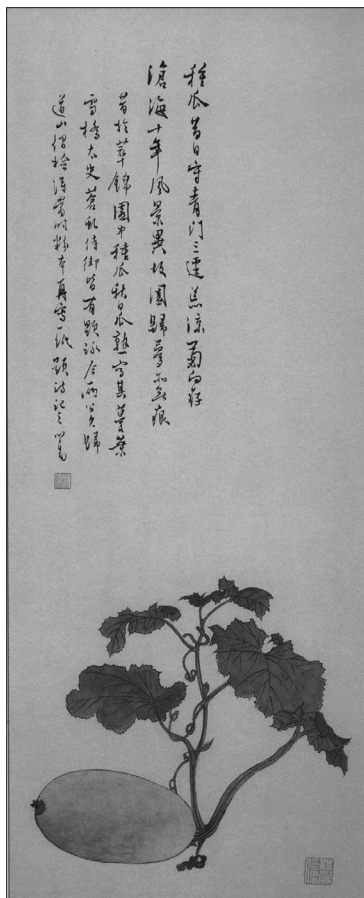 種瓜昔日守青門三逕荒涼菊尚存
滄海十年風景異故園歸夢亦無痕
昔於萃錦園中種瓜秋日瓜熟寫其蔓葉
雪橋太史蒼虬侍御皆有題詠今兩公久歸
道山偶檢得當時粉本再寫一紙題詩記之心畬